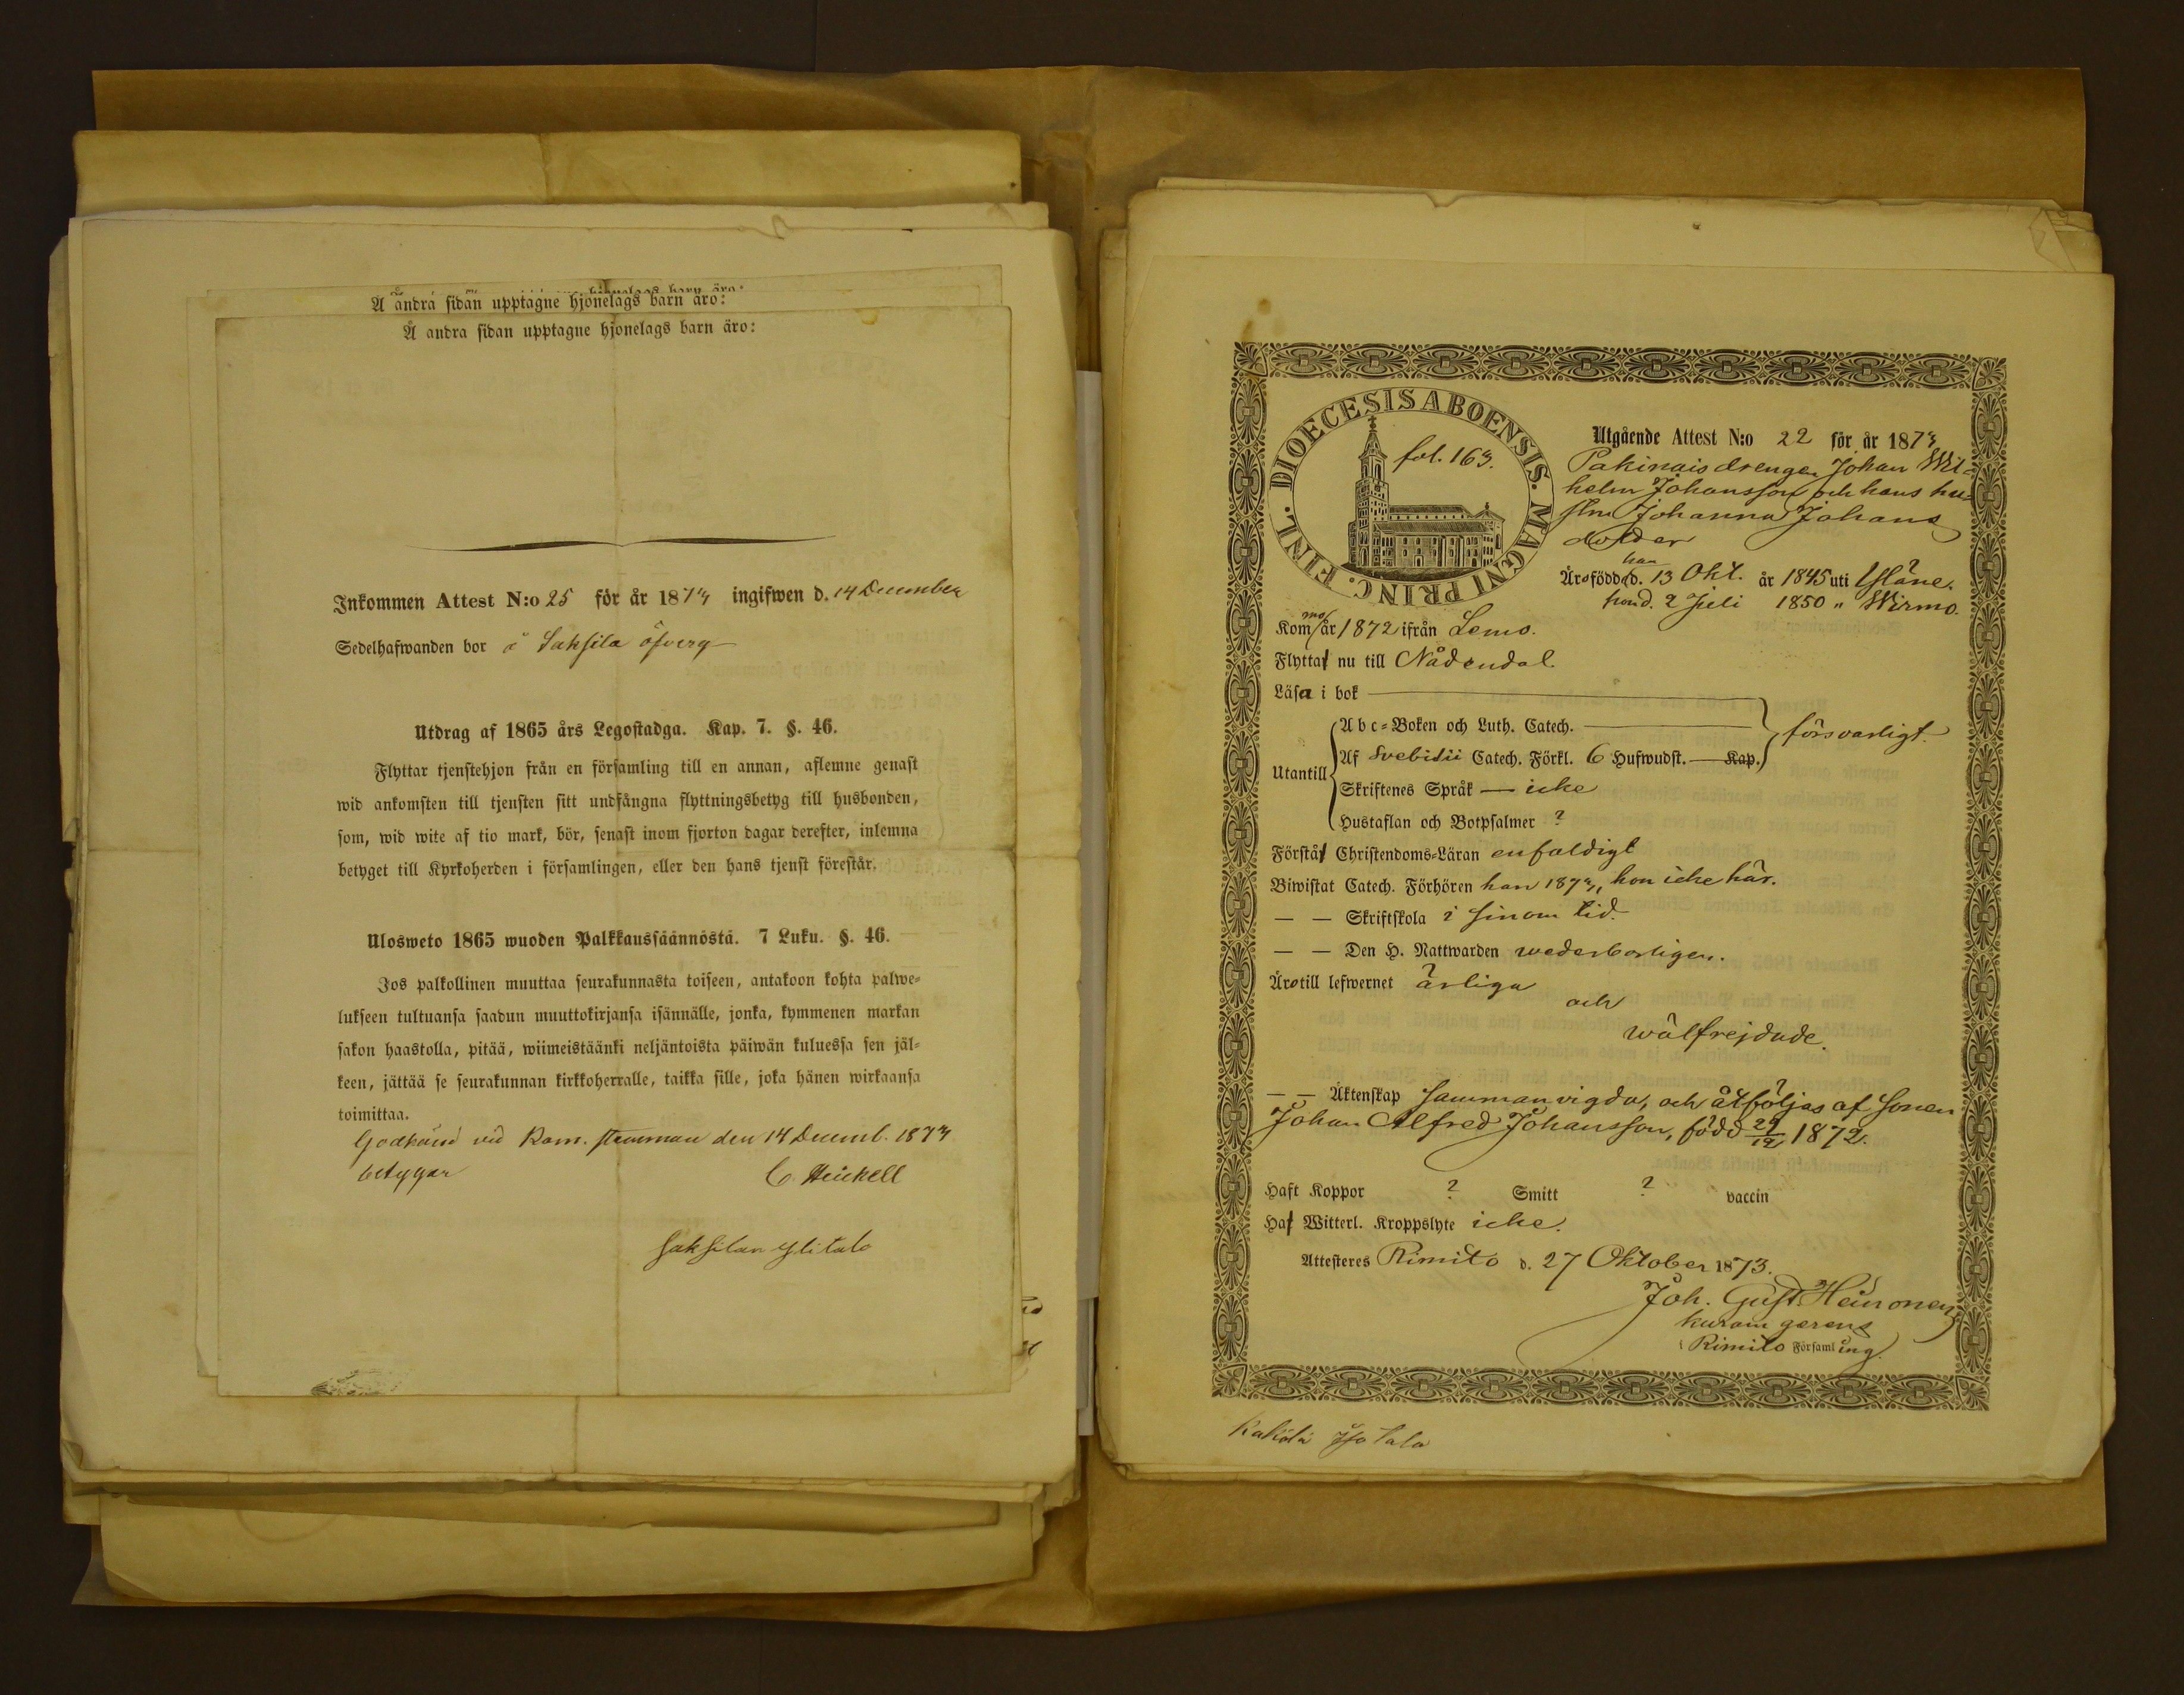 Å andra sidan upptagne hjonelags barn äro:
Å andra sidan upptagne hjonelags barn äro:
Inkommen Attest N:o 25 för år 1873 ingifwen d. 14 December
Sedelhafwanden bor å Saksila öfverg
Utdrag af 1865 års Legostadga. Kap. 7. §. 46.
Flyttar tjenstehjon från en församling till en annan, aflemne genast
wid ankomsten till tjensten sitt undfångna flyttningsbetyg till husbonden,
som, wid wite af tio mark, bör, senast inom fjorton dagar derefter, inlemna
betyget till Kyrkoherden i församlingen, eller den hans tjenst förestår.
Ulosweto 1865 wuoden Palkkaussäännöstä. 7 Luku. §. 46.
Jos palkollinen muuttaa seurakunnasta toiseen, antakoon kohta palwe-
lukseen tultuansa saadun muuttokirjansa isännälle, jonka, kymmenen markan
sakon haastolla, pitää, wiimeistäänki neljäntoista päiwän kuluessa sen jäl-
keen, jättää se seurakunnan kirkkoherralle, taikka sille, joka hänen wirkaansa
toimittaa.
Godkänd vid Kom. stämman den 14 Decemb. 1873
betygar C. Heickell
Saksilan Ylitalo
DIOECESIS ABOENSIS. MAGNI PRINC. FINL.
fol. 163.
Utgående Attest N:o 22 för år 1873
Pakinais drengen Johan Wil-
helm Johansson och hans hu-
stru Johanna Johans
dotter
han
Äro född d. 13 Okt. år 1845 uti Yläne.
hon d. 2 Juli 1850 " Wirmo.
Kommo år 1872 ifrån Lemo.
Flytta nu till Nådendal.
Läsa i bok
Abc-Boken och Luth. Catech. försvarligt.
Utantill Af Svebilii Catech. Förkl. 6 Hufwudst. Kap.
Skriftenes Språk — icke
Hustaflan och Botpsalmer ?
Förstå Christendoms-Läran enfaldigt
Biwistat Catech. Förhören han 1873, hon icke här.
— — Skriftskola i sinom tid.
— — Den H. Nattwarden wederbörligen.
Äro till lefwernet ärliga
och
wälfrejdade.
— — Äktenskap sammanvigda, och åtföljas af sonen
Johan Alfred Johansson, född 29/12 1872.
Haft Koppor ? Smitt ? vaccin
Ha Witterl. Kroppslyte icke.
Attesteres Rimito d. 27 Oktober 1873.
Joh. Gust. Heinonen
kuram gerens
Rimito Församling.
Kakola Isotalo